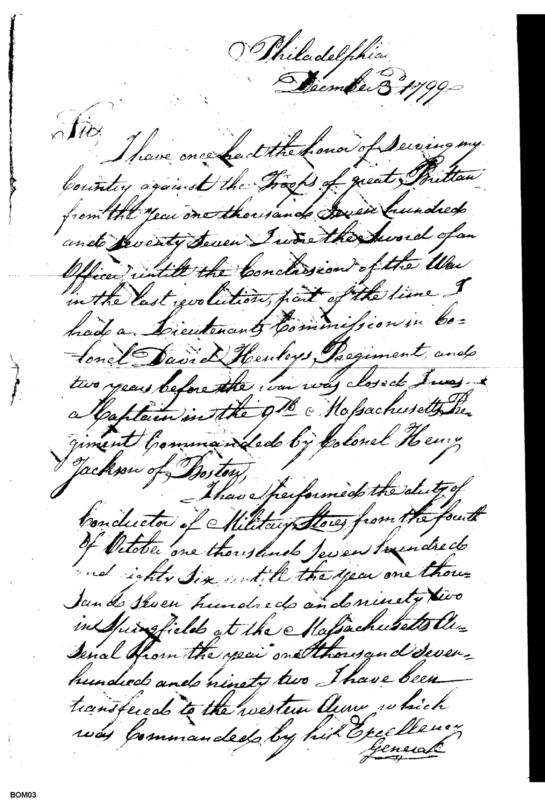 Philadelphia
December 3d 1799
Sir,
I have once had the honor of serving my
Country against the Troops of great Brittan
from the year one thousand Seven hundred
and Seventy Seven I wore the Sword of an
Officer untill the Conclusion of the War
in the last revolution, part of the time I
had a Lieutenants Commission in Co=
=lonel David Henleys Regiment, and
two years before the war was closed I was
a Captain in the 9th Massachusetts Re=
giment Commanded by Colonel Henry
Jackson of Boston,
I have performed the duty of
Conductor of Military Stores from the fourth
of October one thousand Seven hundred
and eighty Six untill the year one thou=
sand Seven hundred and ninety two
in Springfield at the Massachusetts Ar=
senal from the year one thousand seven=
hundred and ninety two I have been
transfered to the western Army which
was Commanded by his Excellency
General
BOM03